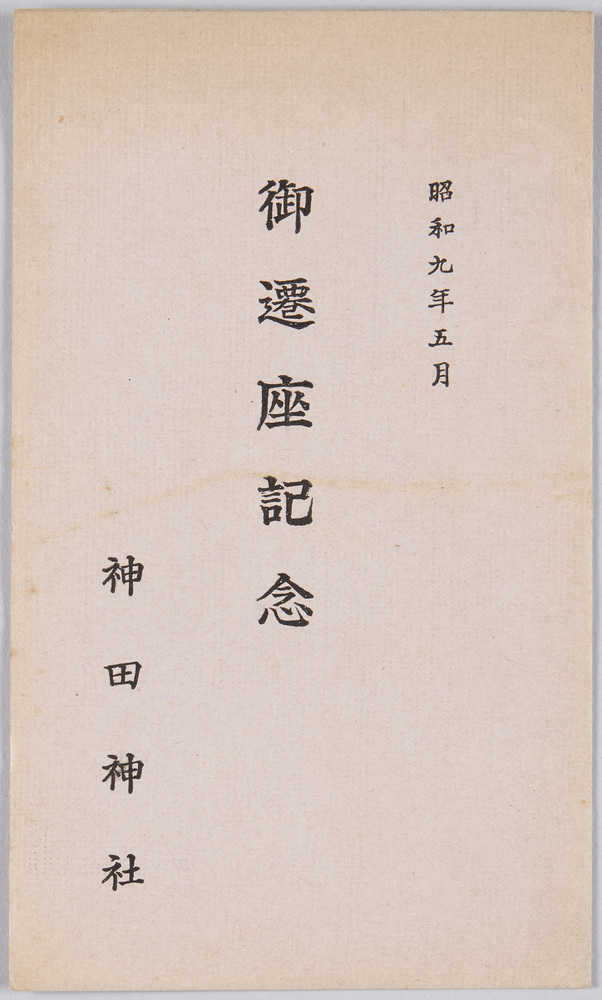 昭和九年五月
御遷座記念
神田神社